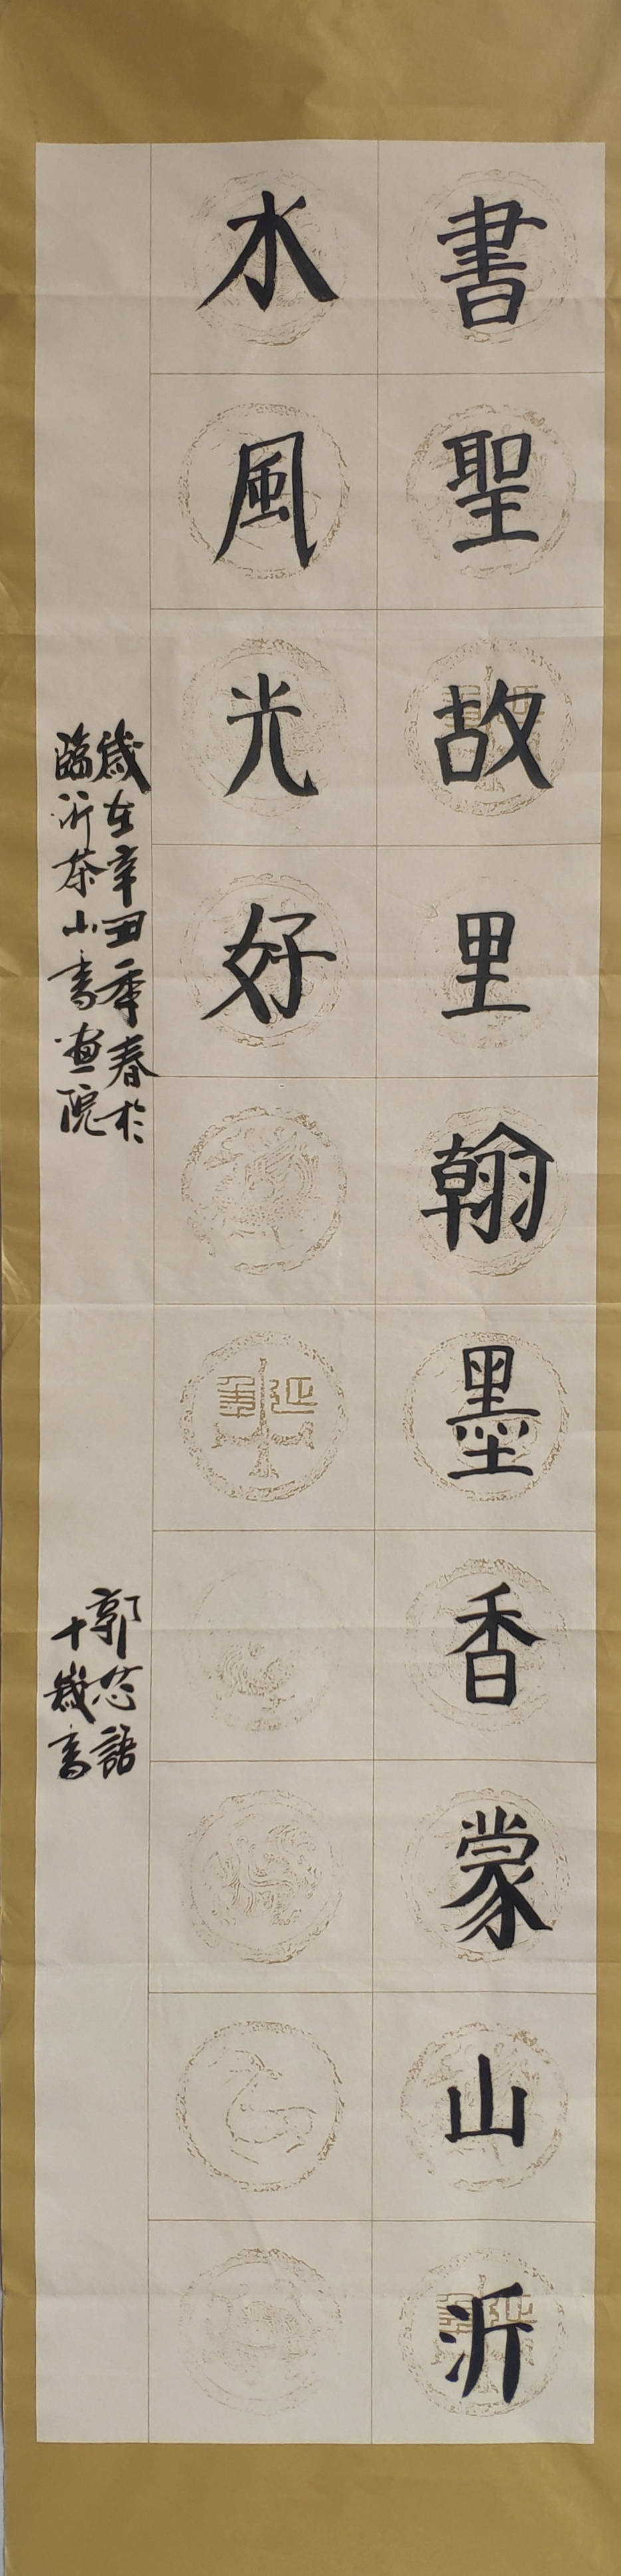 書聖故里翰墨香蒙山沂
水風光好
歲在辛丑季春於
臨沂茶山書畫院
郭芯語
十歲書